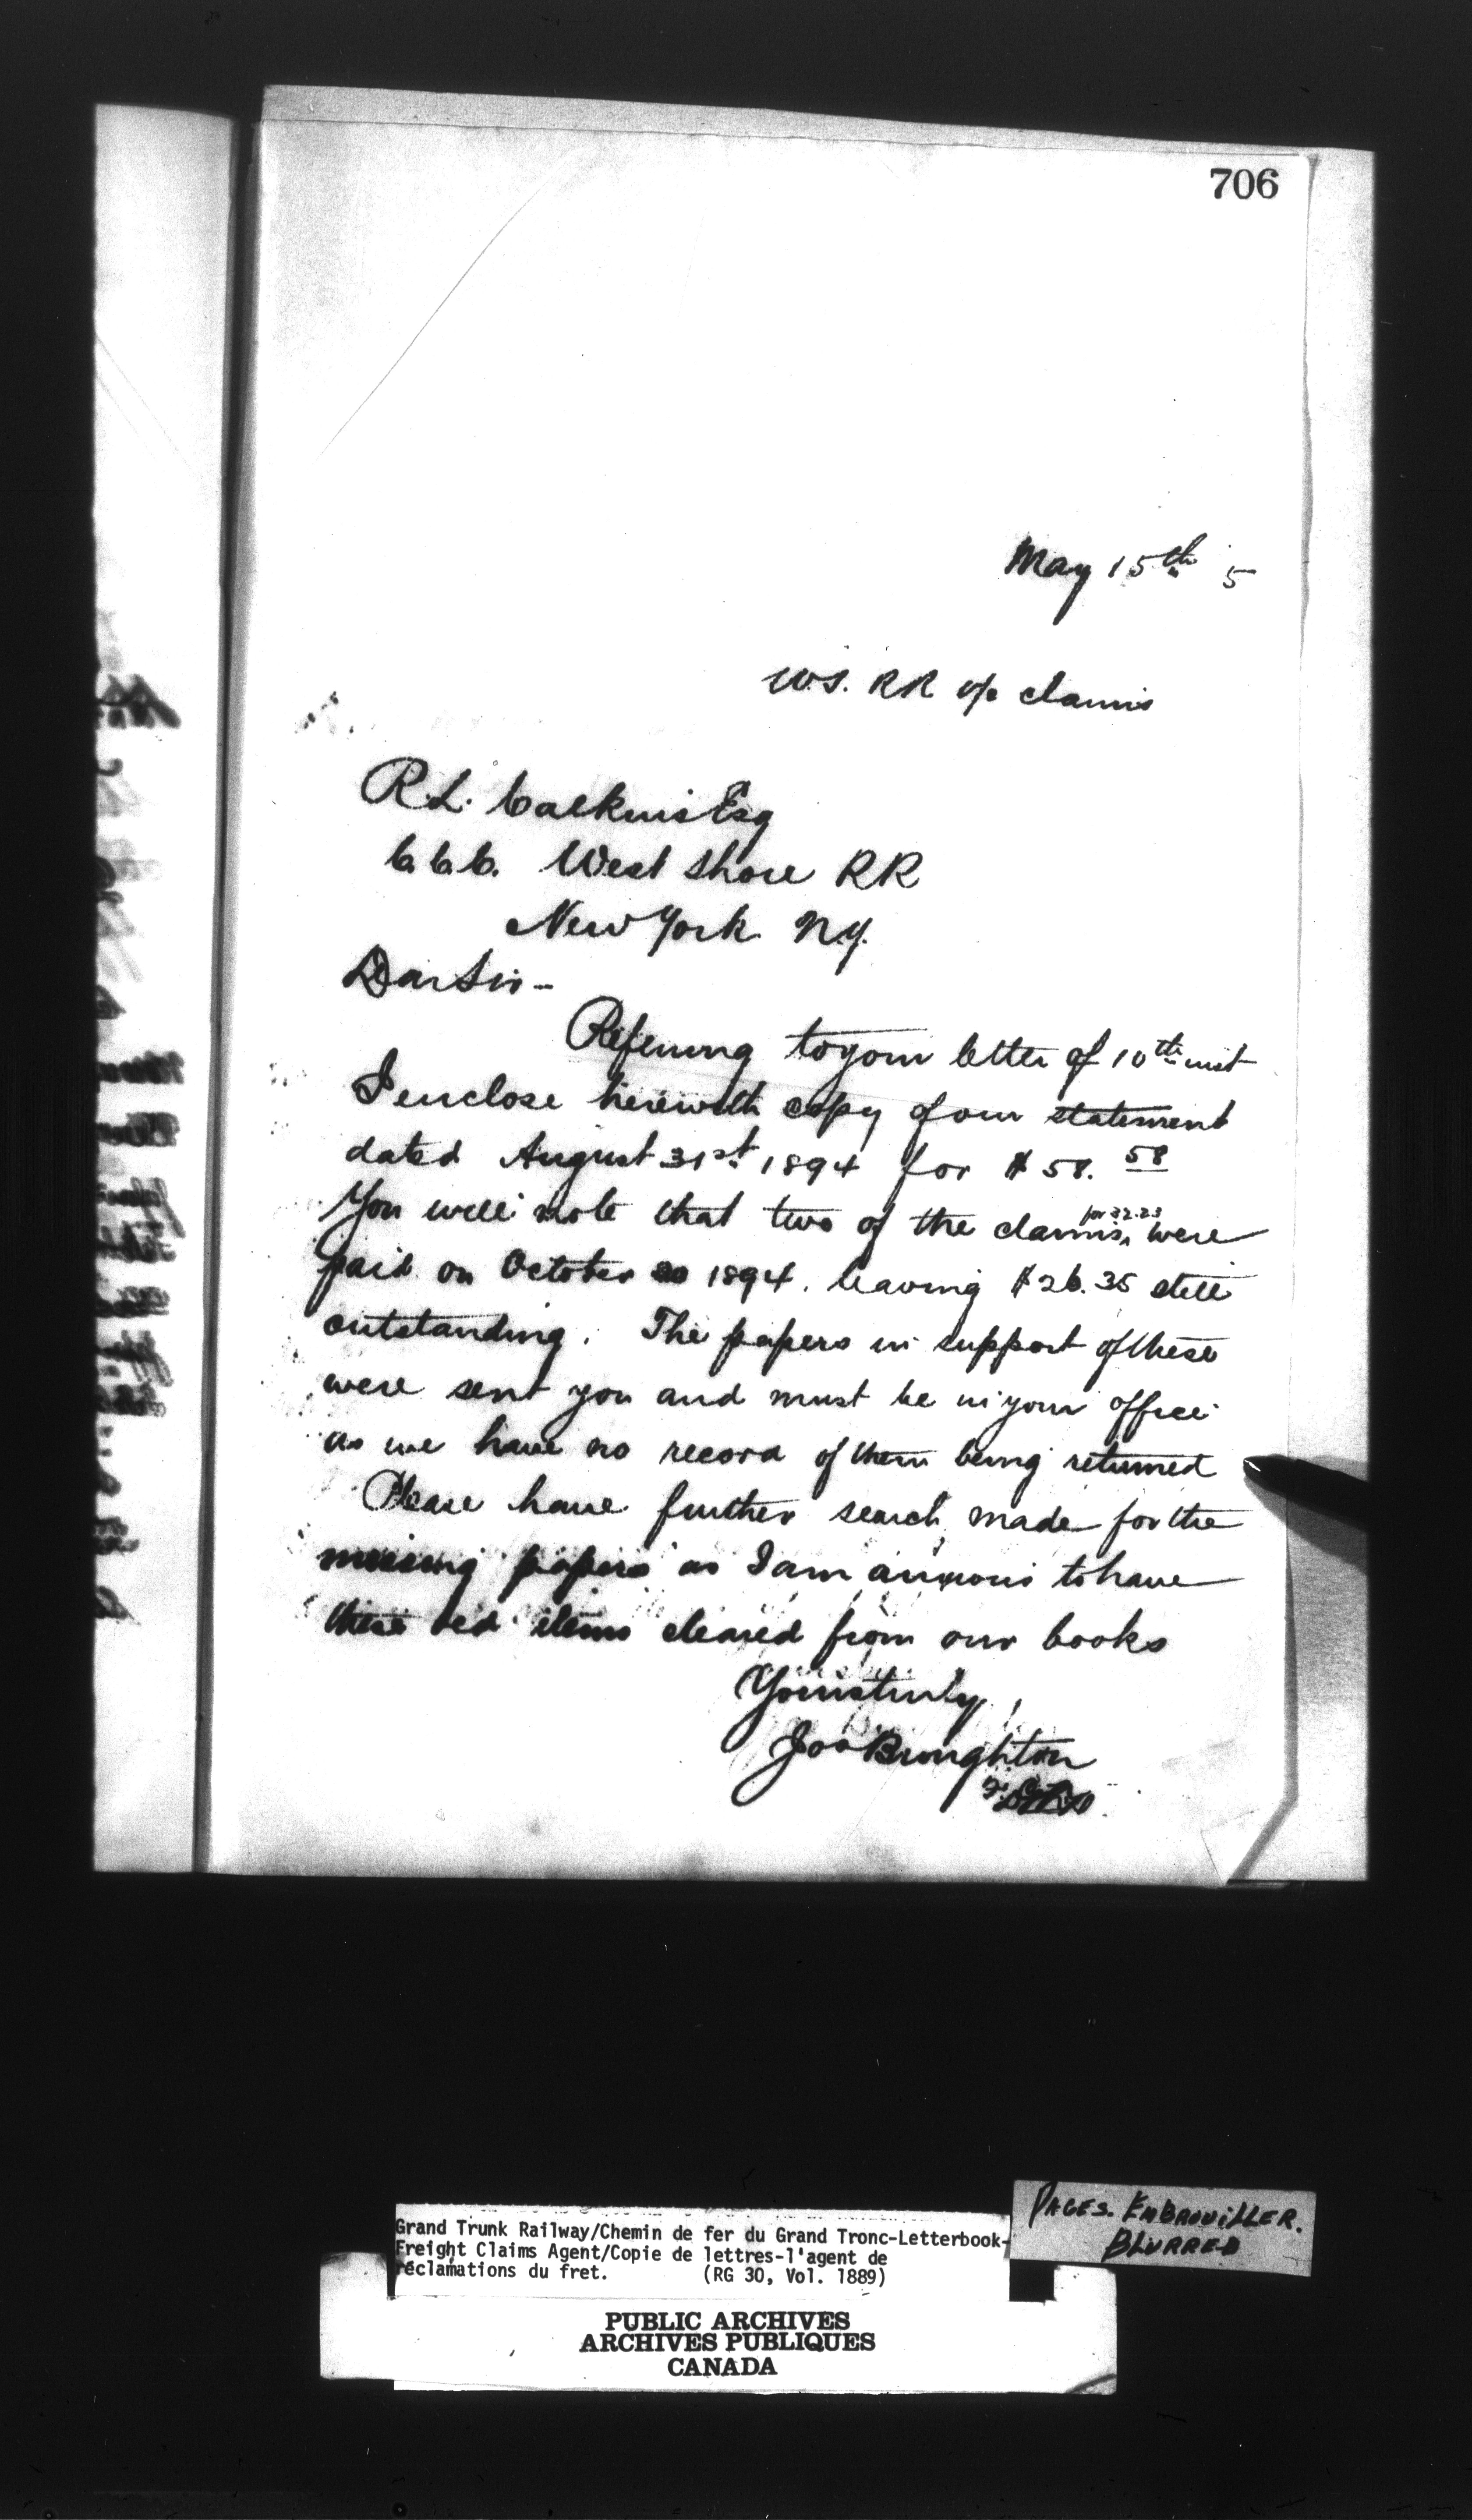 706
May 15th 5
W.S. RR o/c claims
R.L. Calkins Esq
C.C.C. West Shore RR
New York N.Y.
Dear Sir -
Referring to your letter of 10th inst
I enclose herewith copy of our statement
dated August 31st 1894 for $58.58
You will note that two of the claims, for 32.23 were
paid on October 1894. leaving $26.35 still
outstanding. The papers in support of these
were sent you and must be in your office
as we have no record of them being returned
Please have further search made for the
missing papers as I am anxious to have
these old items cleared from our books
Yours truly,
Jno Broughton
Grand Trunk Railway/Chemin de fer du Grand Tronc-Letterbook-
Freight Claims Agent/Copie de lettres-l'agent de
réclamations du fret. (RG 30, Vol. 1889)
PAGES. EMBROUILLER.
BLURRED
PUBLIC ARCHIVES
ARCHIVES PUBLIQUES
CANADA